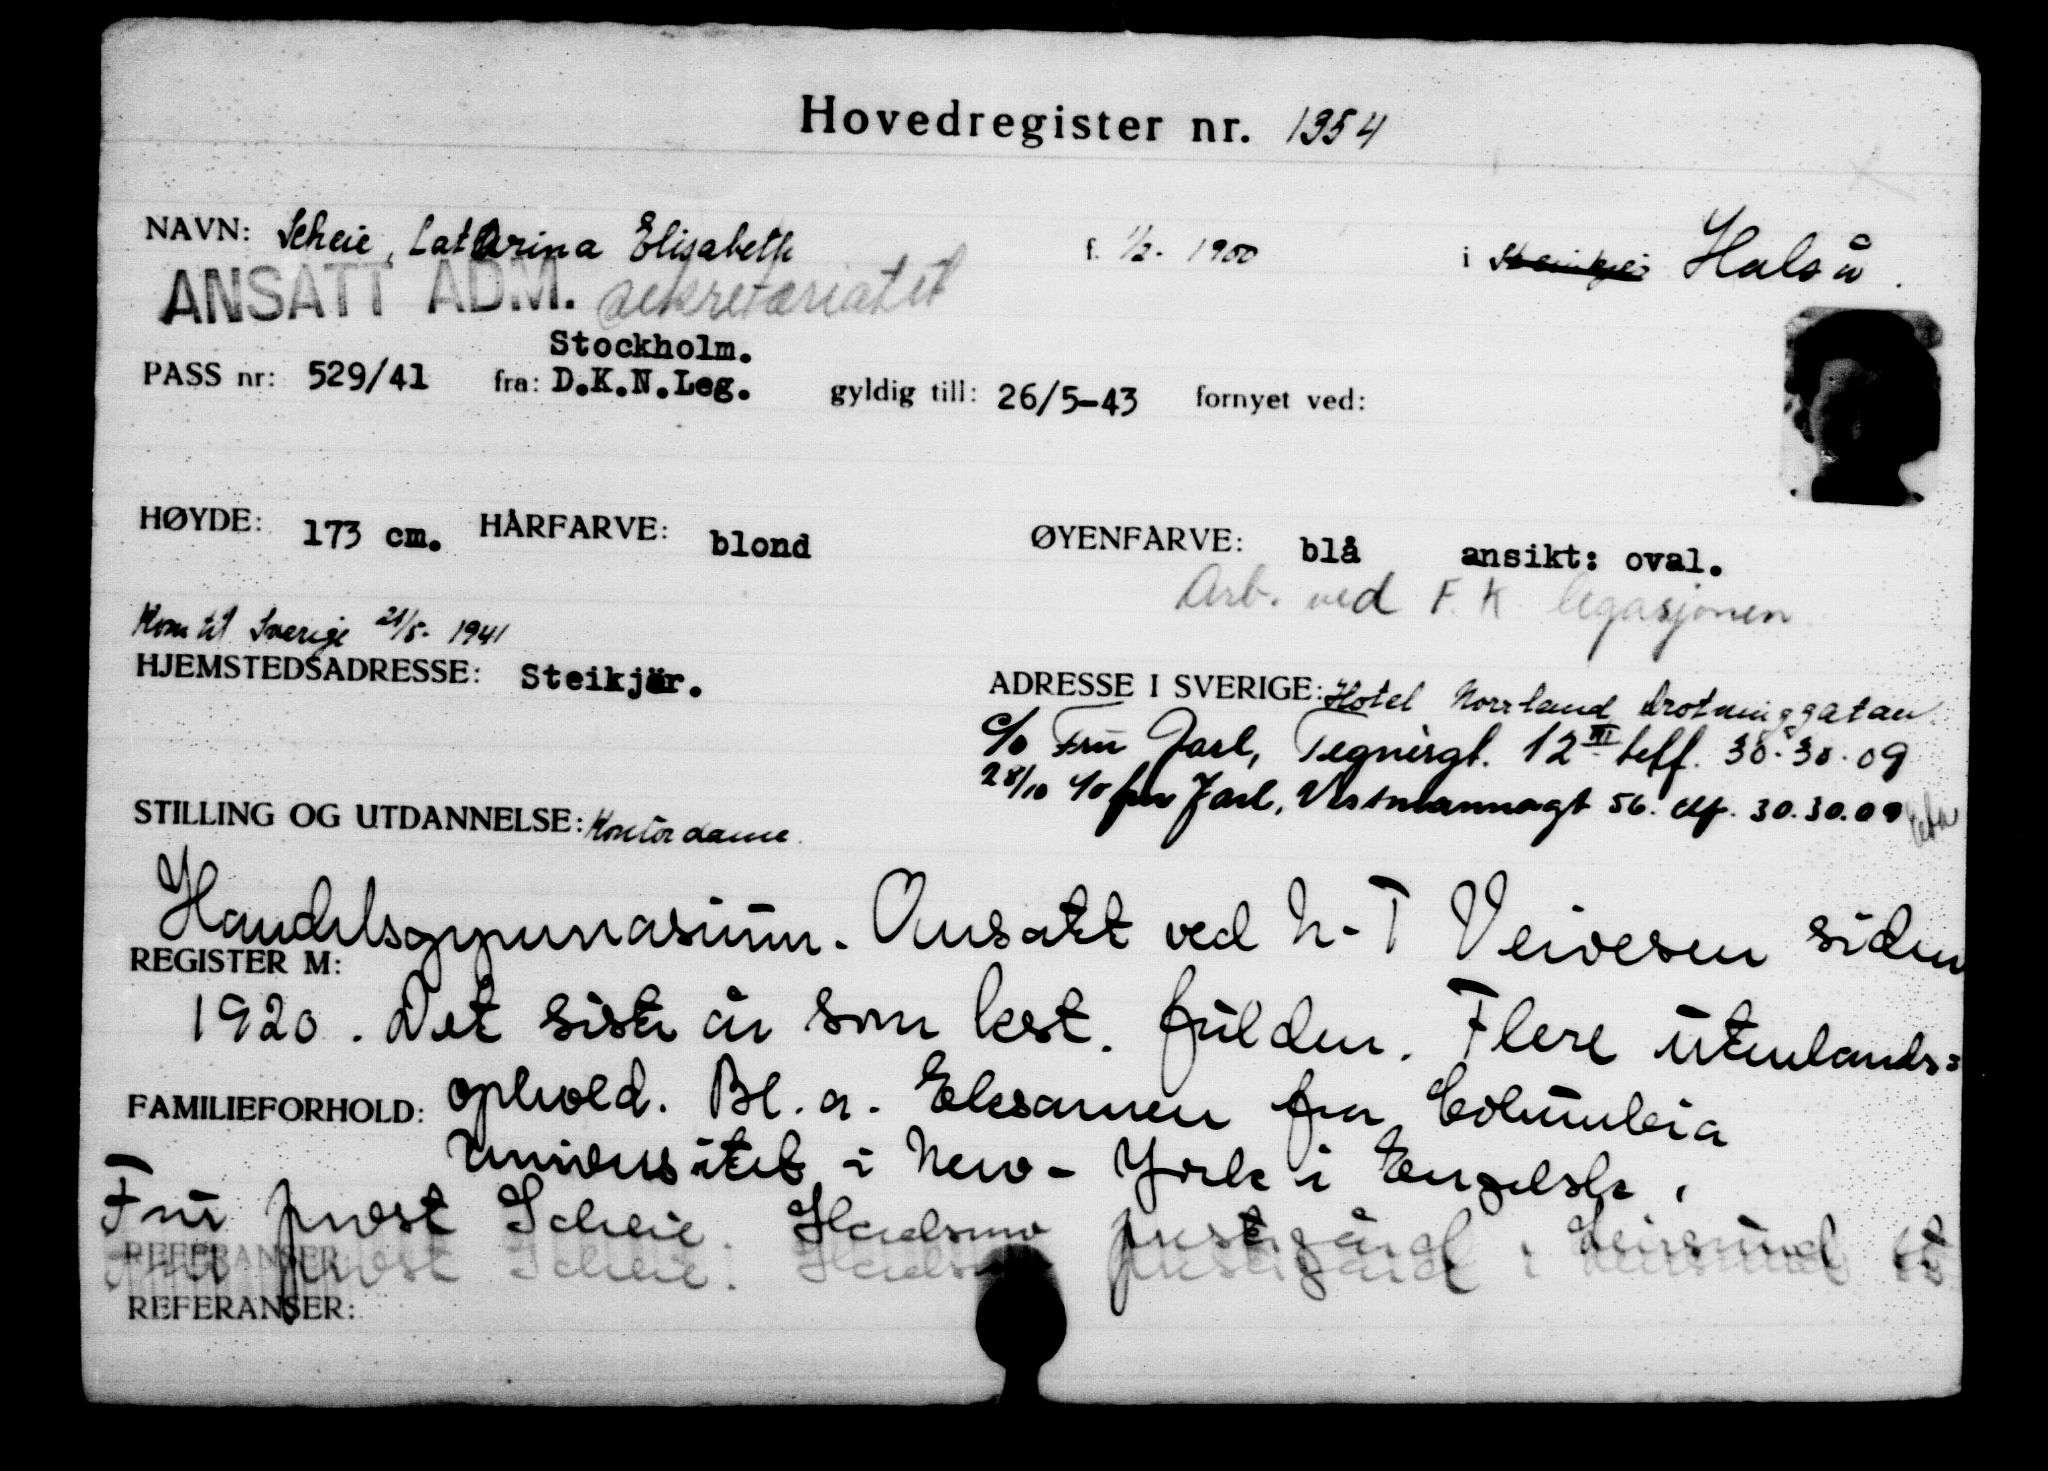 Hovedregister nr. 1354
NAVN: Scheie, Catarina Elisabeth f. 1/2. 1900 i Steinkjer Halså.
ANSATT ADM. sekretariatet
Stockholm.
PASS nr: 529/41 fra: D.K.N.Leg. gyldig till: 26/5-43 fornyet ved:
HØYDE: 173 cm. HÅRFARVE: blond ØYENFARVE: blå ansikt: oval.
Arb. ved F. K legasjonen
Kom til Sverige 21/5- 1941
HJEMSTEDSADRESSE: Steikjär. ADRESSE I SVERIGE: Hotel Norrland Drotninggatan
c/o Fru Jarl, Tegnérgt. 12 III telf. 30.30.09
28/10 c/o fru Jarl, Vestmannagt 56. tlf. 30.30.09
STILLING OG UTDANNELSE: Kontordame.
Handelsgymnasium. Ansatt ved N-T Veivesen siden
REGISTER M:
1920. Det siste år som best. fullm. Flere utenlands=
FAMILIEFORHOLD: ophold. Bl. a. Eksamen fra Columbia
Universitet i New-York i Engelsk.
Fru prost Scheie. prestegård i
REFERANSER:
REFERANSER: